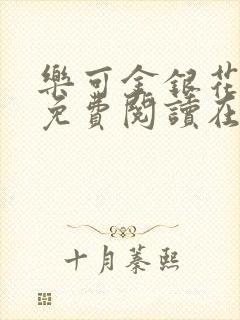 樂可金銀花
免費閱讀在
十月蓁熙